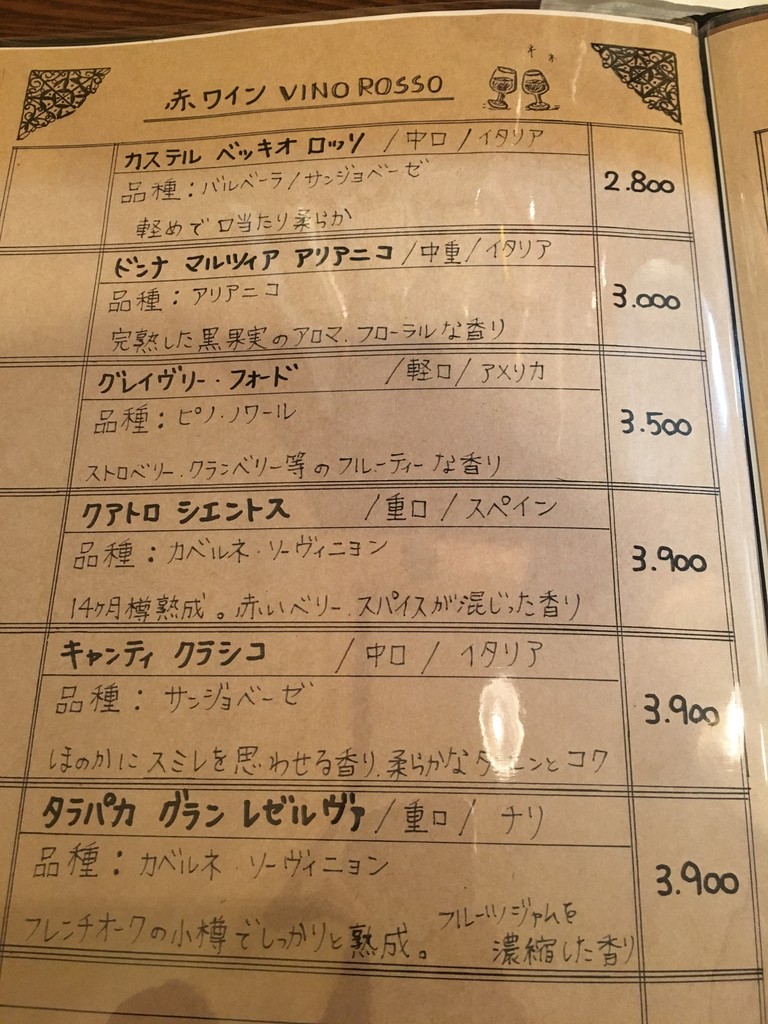 赤ワイン VINO ROSSO
カステル ベッキオ ロッソ /中口/イタリア
品種:バルベーラ/サンジョベーゼ
2.800
軽めで口当たり柔らか
ドンナ マルツィア アリアニコ/中重/イタリア
品種:アリアニコ
3.000
完熟した黒果実のアロマ.フローラルな香り
グレイヴリー・フォード /軽口/アメリカ
品種:ピノ・ノワール
3.500
ストロベリー.クランベリー等のフルーティーな香り
クアトロ シエントス /重口/スペイン
品種:カベルネ・ソーヴィニョン
3.900
14ヶ月樽熟成。赤いベリー.スパイスが混じった香り
キャンティ クラシコ /中口/イタリア
品種:サンジョベーゼ
3.900
ほのかにスミレを思わせる香り.柔らかなタンニンとコク
タラパカ グラン レゼルヴァ/重口/チリ
品種:カベルネ・ソーヴィニョン
3.900
フレンチオークの小樽でしっかりと熟成。フルーツジャムを
濃縮した香り